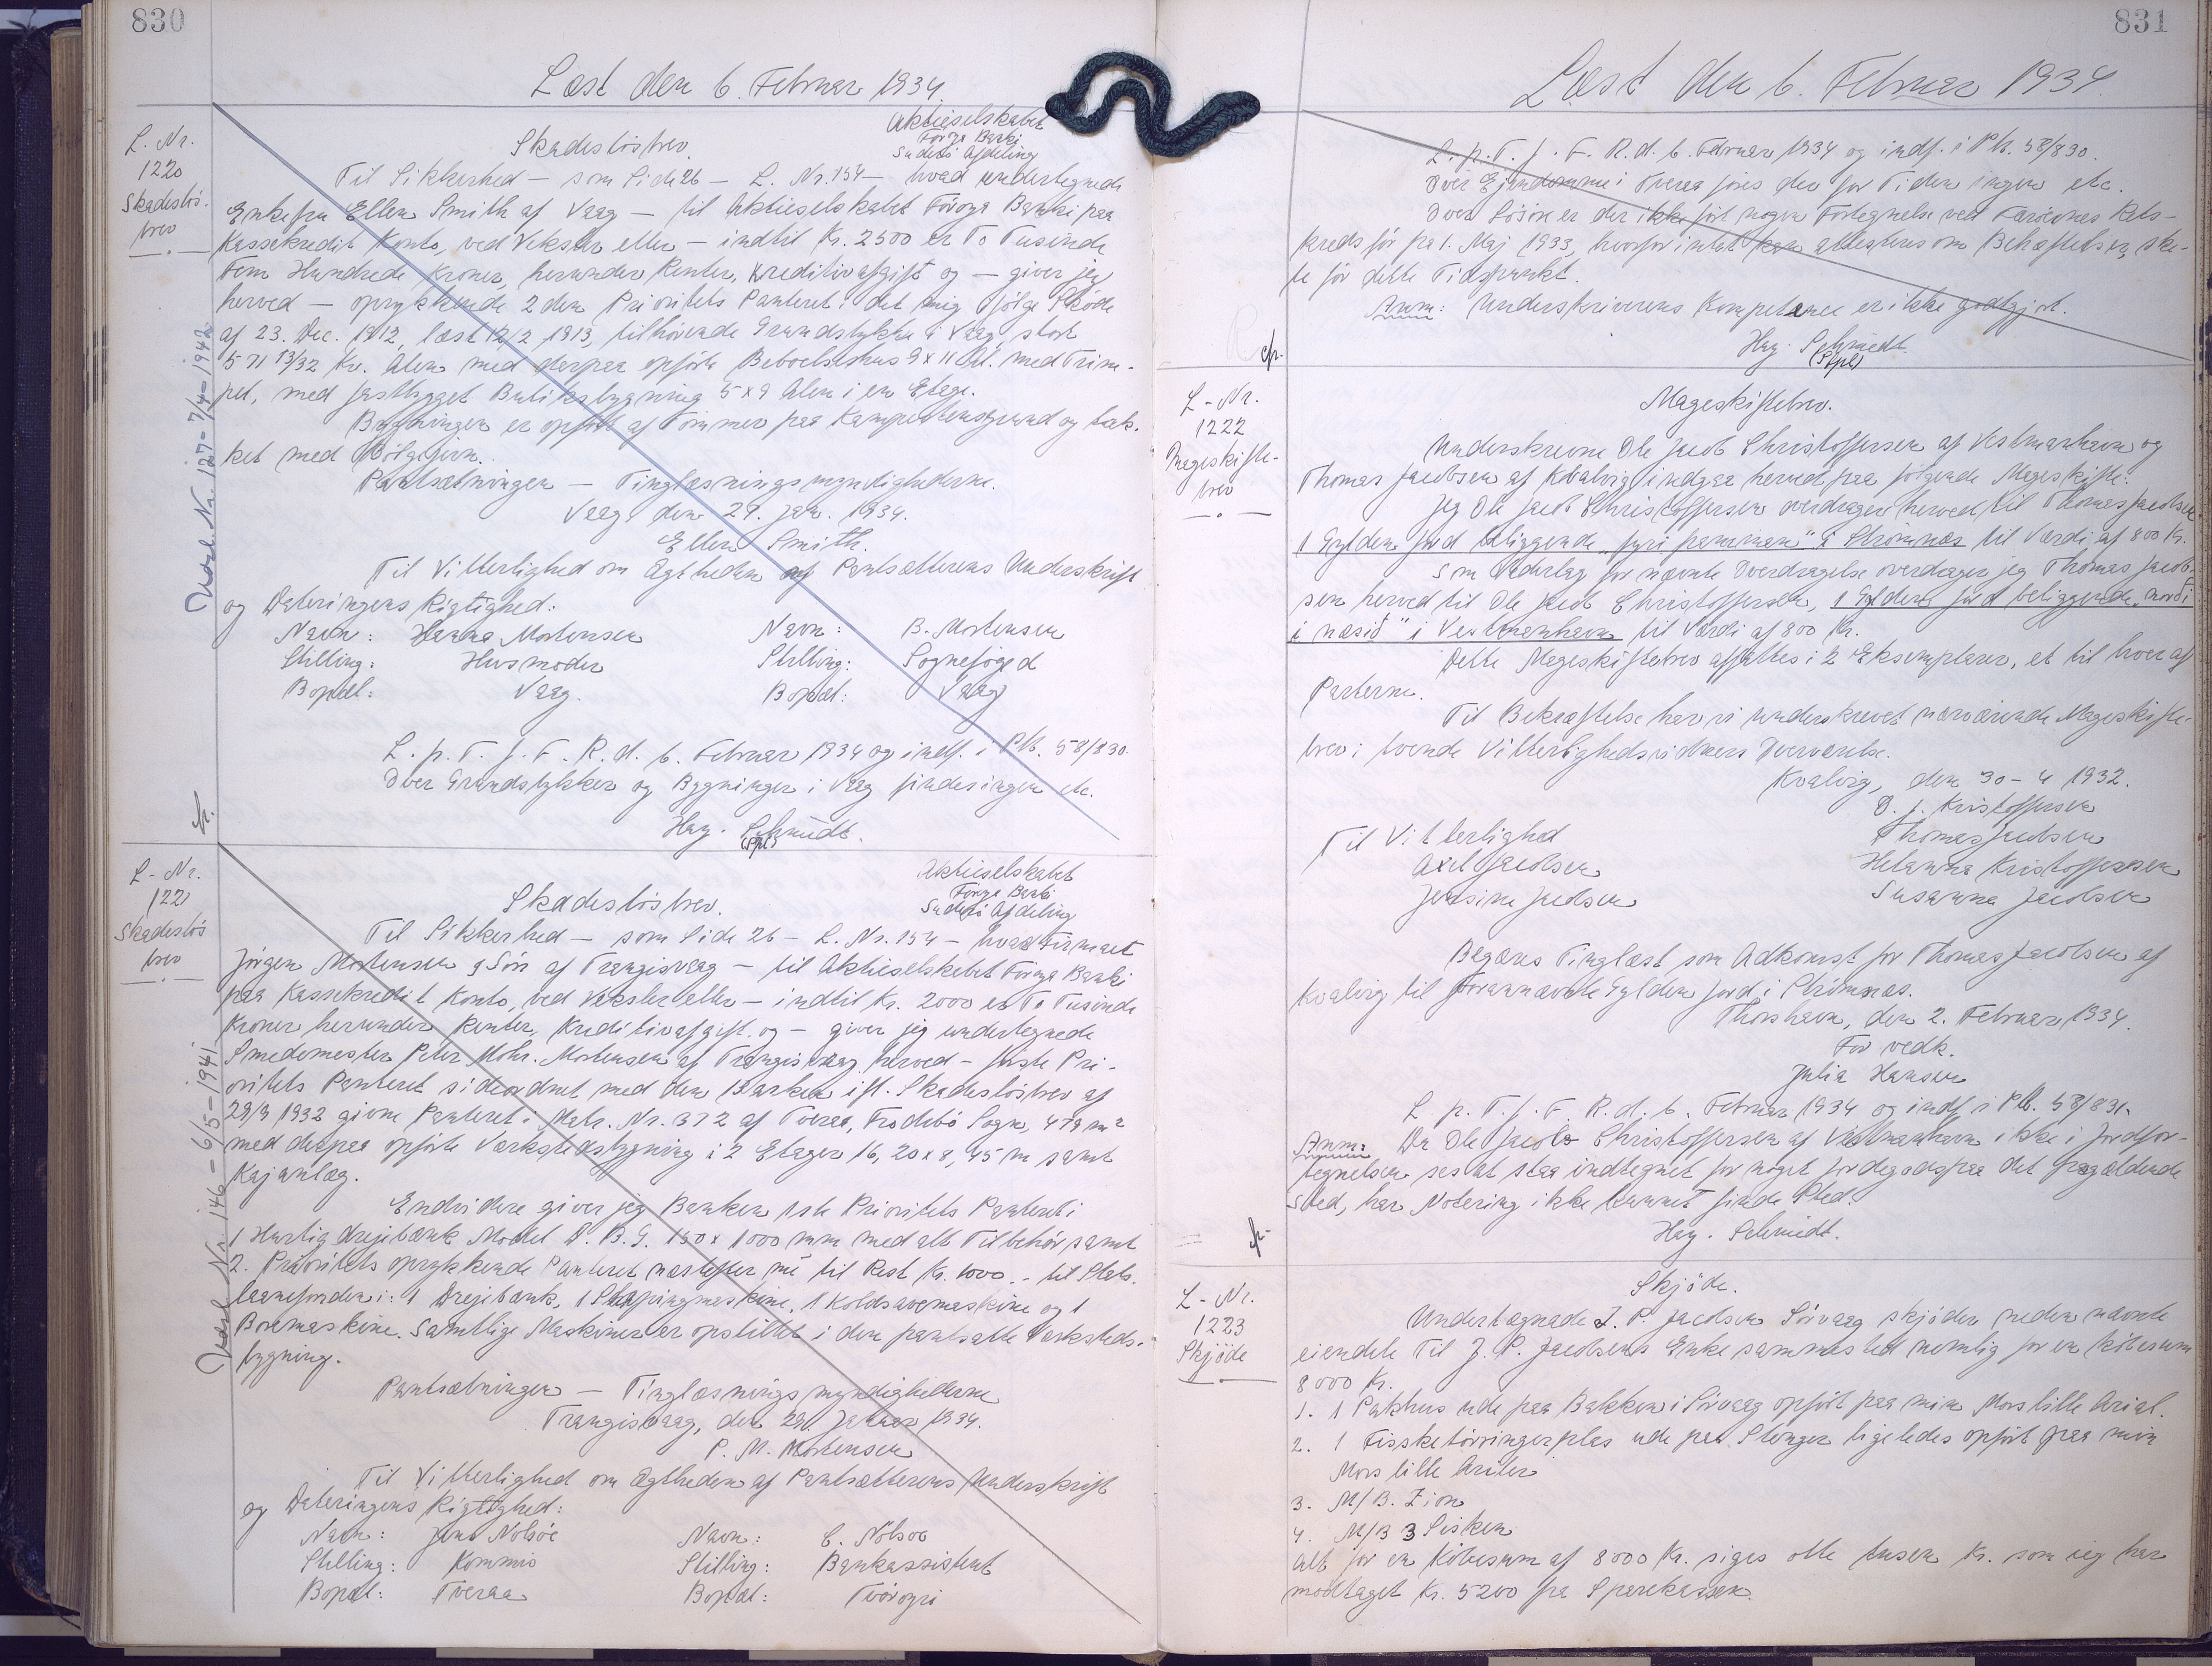 830
Læst den 6. Februar 1934.
L. Nr.
1220
Skadeslös-
brev
Aktieselskabet
Föroya Banki
Suderö Afdeling
Skadeslösbrev.
Til Sikkerhed — som Side 26 — L. Nr. 154 — hvad undertegnede
Enkefru Ellen Smith af Vaag — til Aktieselskabet Föroya Banki paa
Kassekredit Konto, ved Veksler eller — indtil Kr. 2500 er To Tusinde
Fem Hundrede Kroner, herunder Renter, Kreditivafgift og — giver jeg
herved — oprykkende 2den Prioritets Panteret i det mig ifölge Sköde
af 23. Dec. 1912, læst 12/2 1913, tilhörende Grundstykke i Vaag, stort
571 13/32 Kv. Alen med derpaa opförte Beboelseshus 9 x 11 Al. med Trim-
pel, med fastbygget Butiksbygning 5 x 9 Alen i en Etage.
Bygningen er opfört af Tömmer paa Kampestensgrund og tæk-
ket med Bölgejern.
Pantsætningen — Tinglæsningsmyndighederne.
Vaag den 29. Jan. 1934.
Ellen Smith.
Til Vitterlighed om Ægtheden af Pantsætterens Underskrift
og Dateringens Rigtighed:
Navn: Hanna Mortensen Navn: B. Mortensen
Stilling: Husmoder Stilling: Sognefoged
Bopæl: Vaag. Bopæl: Vaag
L. p. T. f. F. R. d. 6. Februar 1934 og indf. i Pb. 58/830.
Over Grundstykker og Bygninger i Vaag findes ingen etc.
Hay. Schmidt.
(Spl)
Udsl. Nr. 127 - 7/4 - 1942.
L - Nr.
1221
Skadeslös
brev
Aktieselskabet
Föroya Banki
Suderö Afdeling
Skadeslösbrev.
Til Sikkerhed — som Side 26 — L. Nr. 154 — hvad Firmaet
Jörgen Mortensen & Sön af Trangisvaag — til Aktieselskabet Föroya Banki
paa Kassekredit Konto, ved Veksler eller — indtil Kr. 2000 er To Tusinde
Kroner herunder Renter, Kreditivafgift og — giver jeg undertegnede
Smedemester Peter Mohr Mortensen af Trangisvaag herved — förste Pri-
oritets Panteret sideordnet med den Banken ifl. Skadeslösbrev af
29/3 1932 givne Panteret i Matr. Nr. 372 af Tveraa, Frodebö Sogn, 479 m²
med derpaa opförte Værkstedsbygning i 2 Etager 16,20 x 8,45 m samt
Kajanlæg.
Endvidere giver jeg Banken 1ste Prioritets Panteret i
1 Hurtigdrejebænk Model D. B. G. 150 x 1000 mm med alt Tilbehör samt
2. Prioritets oprykkende Panteret næstefter nu til Rest Kr. 1000.- til Stats-
laanefonden i: 1 Drejebænk, 1 Shapingmaskine, 1 Koldsavemaskine og 1
Boremaskine. Samtlige Maskiner er opstillet i den pantsatte Værksteds-
bygning.
Pantsætningen — Tinglæsningsmyndighederne
Trangisvaag, den 29. Januar 1934.
P. M. Mortensen
Til Vitterlighed om Ægtheden af Pantsætterens Underskrift
og Dateringens Rigtighed:
Navn: Jens Nolsöe Navn: C. Nolsoe
Stilling: Kommis Stilling: Bankassistent
Bopæl: Tveraa Bopæl: Tvöroyri
Udsl. Nr. 146 - 6/5 - 1941
831
Læst den 6. Februar 1934.
L. p. T. f. F. R. d. 6. Februar 1934 og indf. i Pb. 58/830.
Over Ejendomme i Tveraa föres der for Tiden ingen etc.
Over Lösöre er der ikke fört nogen Fortegnelse ved Færöernes Rets-
kreds för fra 1. Maj 1933, hvorfor intet kan attesteres om Behæftelser, ske-
te för dette Tidspunkt.
Anm: Underskriverens Kompetence er ikke godtgjort.
Hay. Schmidt.
(Spl)
L - Nr.
1222
Mageskifte-
brev
Mageskiftebrev.
Underskrevne Ole Jacob Christoffersen af Vestmanhavn og
Thomas Jacobsen af Kvalvig indgaa herved paa fölgende Mageskifte:
Jeg Ole Jacob Christoffersen overdrager herved til Thomas Jacobsen
1 Gylden Jord beliggende "fyri framman" i Strömnæs til Værdi af 800 Kr.
Som Vederlag for nævnte Overdragelse overdrager jeg Thomas Jacob-
sen herved til Ole Jacob Christoffersen, 1 Gylden Jord beliggende "nordi
i næsid" i Vestmanhavn til Værdi af 800 Kr.
Dette Mageskiftebrev affattes i 2 Eksemplarer, et til hver af
Parterne.
Til Bekræftelse har vi underskrevet nærværende Mageskifte-
brev i tvende Vitterlighedsvidners Overværelse.
Kvalvig, den 30 - 4 1932.
O. J. Kristoffersen
Til Vitterlighed Thomas Jacobsen
Axel Jacobsen Helanna Kristoffersen
Jensine Jacobsen Susanna Jacobsen
Begæres Tinglæst som Adkomst for Thomas Jacobsen af
Kvalvig til förannævnte Gylden Jord i Strömnæs.
Thorshavn, den 2. Februar 1934.
For vedk.
Julia Hansen
L. p. T. f. F. R. d. 6. Februar 1934 og indf. i Pb. 58/831.
Anm: Da Ole Jacob Christoffersen af Vestmanhavn ikke i Jordfor-
tegnelsen ses at staa indtegnet for noget Jordegods paa det pagældende
Sted, har Notering ikke kunnet finde Sted.
Hay. Schmidt.
L - Nr.
1223
Skjöde
Skjöde.
Undertegnede J. P. Jacobsen Sörvaag skjöder neden nævnte
eiendele Til J. P. Jacobsens Enke sammested nemlig for en köbesum
8000 Kr.
1. 1 Pakhus ude paa Bakken i Sörvaag opfört paa min Mors lille Areal.
2. 1 Fissketörringsplas ude paa Slenger ligeledes opfört paa min
Mors lille Areler
3. M/B. Zion
4. M/B 3 Sisken
alt for en Köbesum af 8000 Kr. siges otte tusen Kr. som jeg har
modtaget Kr. 5200 fra Sparekassen.